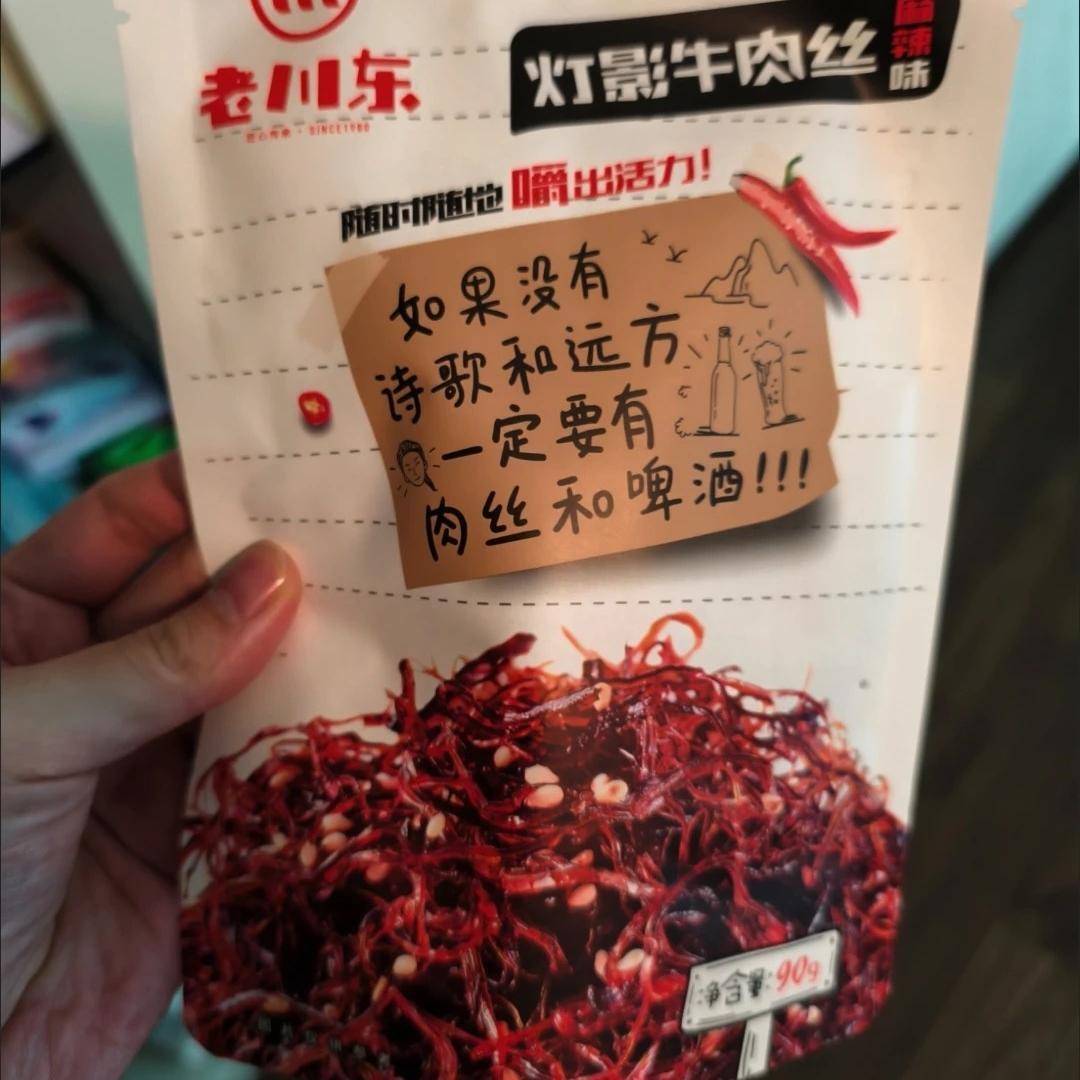 老川东
SINCE1980
灯影牛肉丝
麻辣味
随时随地嚼出活力!
如果没有
诗歌和远方
一定要有
肉丝和啤酒!!!
净含量:90g